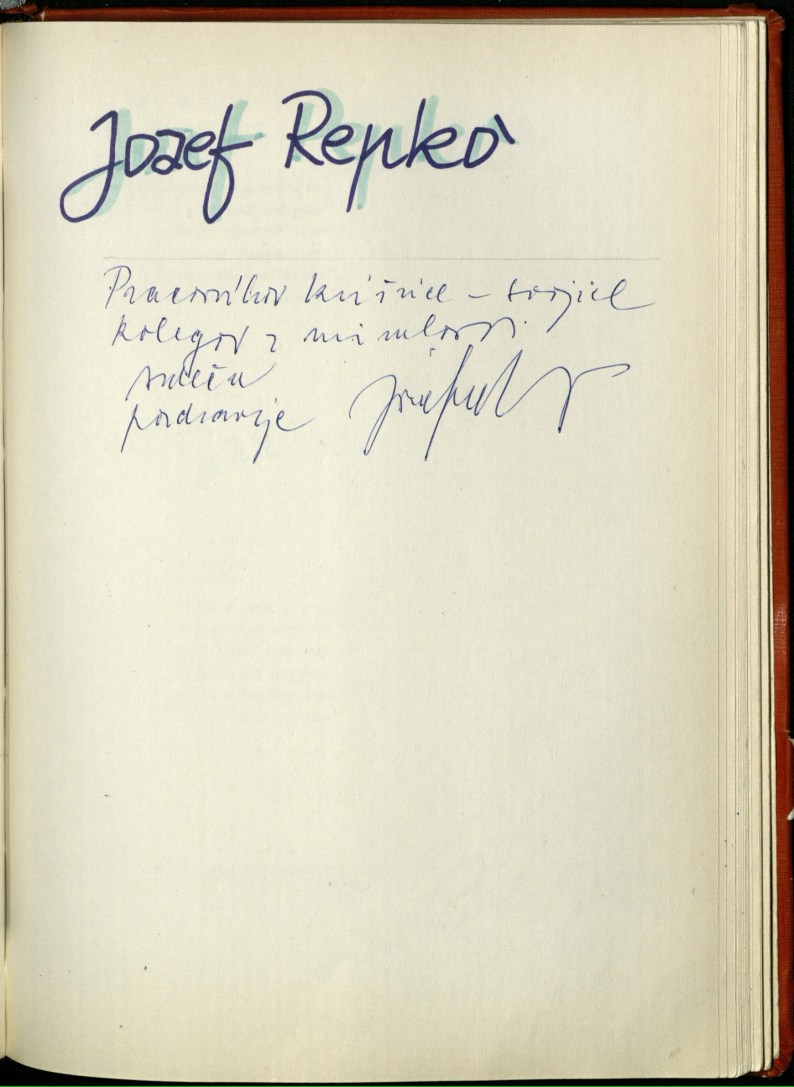 Jozef Repko
Pracovníkov knižnice – svojich
kolegov z minulosti
srdečne
pozdravuje